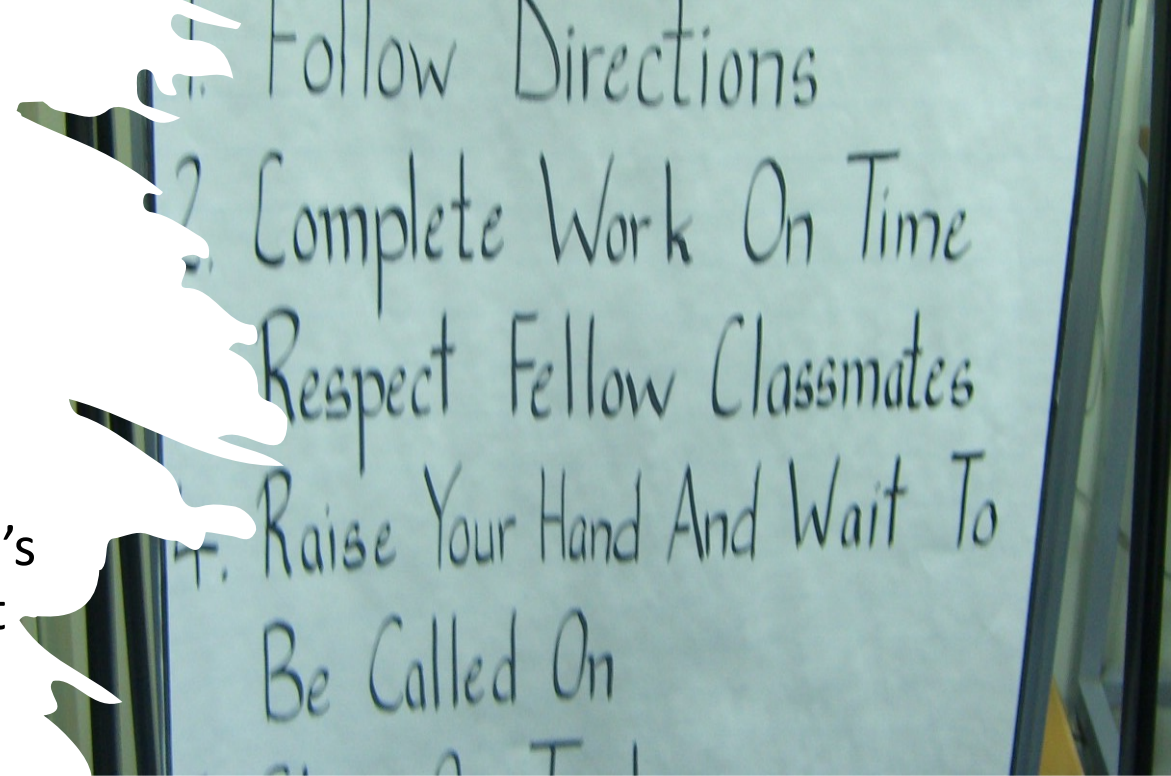 1. Follow Directions
2. Complete Work On Time
Respect Fellow Classmates
4. Raise Your Hand And Wait To
Be Called On
’s
t